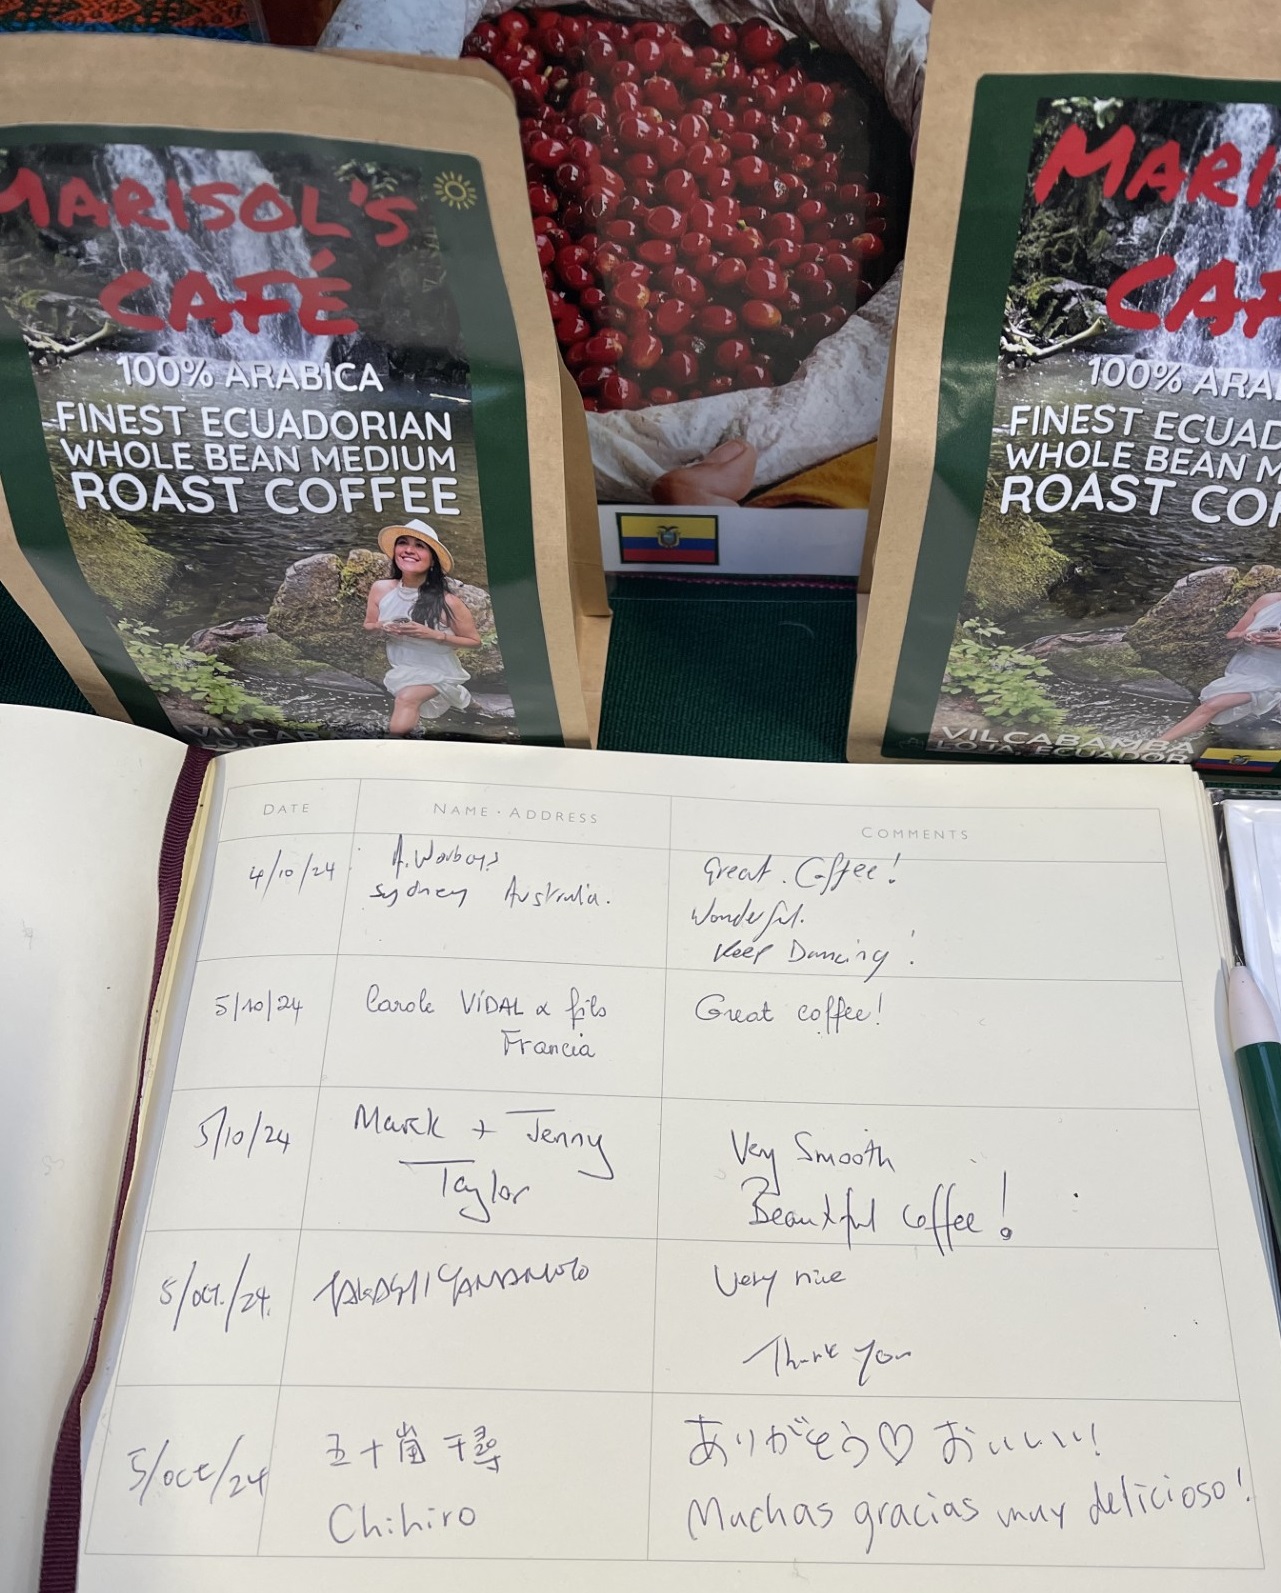 MARISOL'S
CAFÉ
100% ARABICA
FINEST ECUADORIAN
WHOLE BEAN MEDIUM
ROAST COFFEE
MARI
CAF
100% ARA
FINEST ECUAD
WHOLE BEAN M
ROAST COF
VILCABAMBA
LOJA, ECUADOR
DATE NAME · ADDRESS COMMENTS
4/10/24 A. Sydney Australia.
Great Coffee!
Wonderful.
Keep Dancing!
5/10/24 Carole VIDAL & fils
Francia
Great coffee!
5/10/24 Mark + Jenny
Taylor
Very Smooth
Beautiful Coffee!
5/OCT./24. TAKASHI YAMAMOTO
Very nice
Thank you
5/OCT/24 五十嵐 千尋
Chihiro
ありがとう♡ おいしい!
Muchas gracias muy delicioso!